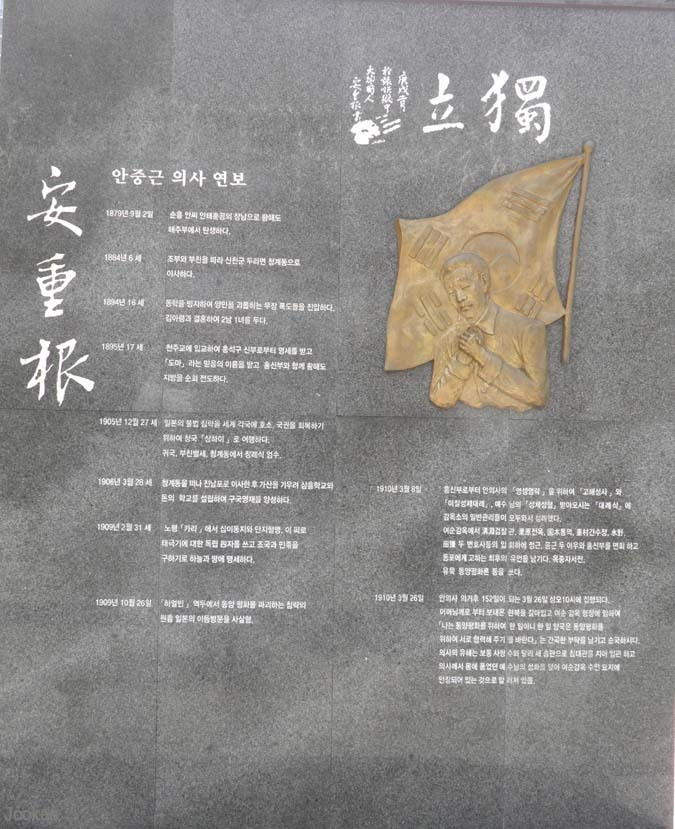 獨立
庚戌二月
於旅順獄中
大韓國人
安重根書
安重根
안중근 의사 연보
1879년 9월 2일
순흥 안씨 안태훈공의 장남으로 황해도
해주부에서 탄생하다.
1884년 6 세
조부와 부친을 따라 신천군 두라면 청계동으로
이사하다.
1894년 16 세
동학을 빙자하여 양민을 괴롭히는 무장 폭도들을 진압하다.
김아령과 결혼하여 2남 1녀를 두다.
1895년 17 세
천주교에 입교하여 홍석구 신부로부터 영세를 받고
「도마」라는 믿음의 이름을 받고 홍신부와 함께 황해도
지방을 순회 전도하다.
1905년 12월 27 세
일본의 불법 침략을 세계 각국에 호소, 국권을 회복하기
위하여 청국「상하이」로 여행하다.
귀국, 부친별세, 청계동에서 장례식 엄수.
1906년 3월 28 세
청계동을 떠나 진남포로 이사한 후 가산을 기우려 삼흥학교와
돈의 학교를 설립하여 구국영재를 양성하다.
1909년 2월 31 세
노령「카리」에서 십이동지와 단지혈맹, 이 피로
태극기에 대한 독립 四자를 쓰고 조국과 민족을
구하기로 하늘과 땅에 맹세하다.
1909년 10월 26일
「하얼빈」역두에서 동양 평화를 파괴하는 침략의
원흉 일본의 이등방문을 사살함.
1910년 3월 8일
홍신부로부터 안의사의 「영생영락」을 위하여「고해성사」와
「미찰성제대례」, 예수 님의「성체성혈」받아모시는「대례식」에
감옥소의 일반관리들이 모두와서 참례했다.
여순감옥에서 溝淵검찰 관, 栗原전옥, 園木통역, 中村간수장, 水野,
두 변호사등의 입 회하에 정근, 공근 두 아우와 홍신부를 면회 하고
동포에게 고하는 최후의 유언을 남기다. 옥중자서전,
유묵 동양평화론 등을 쓰다.
1910년 3월 26일
안의사 의거후 152일이 되는 3월 26일 상오10시에 집행되다.
어머님께로 부터 보내온 한복을 갈아입고 여순 감옥 형장에 임하여
「나는 동양평화를 위하여 한 일이니 한 일 양국은 동양평화를
위하여 서로 협력해 주기 를 바란다」는 간곡한 부탁을 남기고 순국하시다.
의사의 유해는 보통 사형 수와 달리 새 송판으로 침대관을 지어 입관 하고
의사께서 품에 품었던 예 수님의 성화를 넣어 여순감옥 수인 묘지에
안장되어 있는 것으로 알 려져 있음.